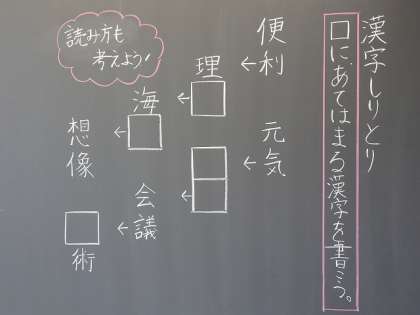 漢字しりとり
□に、あてはまる漢字を書こう。
便利
←
理□
←
海□
←
想像
元気
←
□□
←
会議
←
□術
読み方も
考えよう!